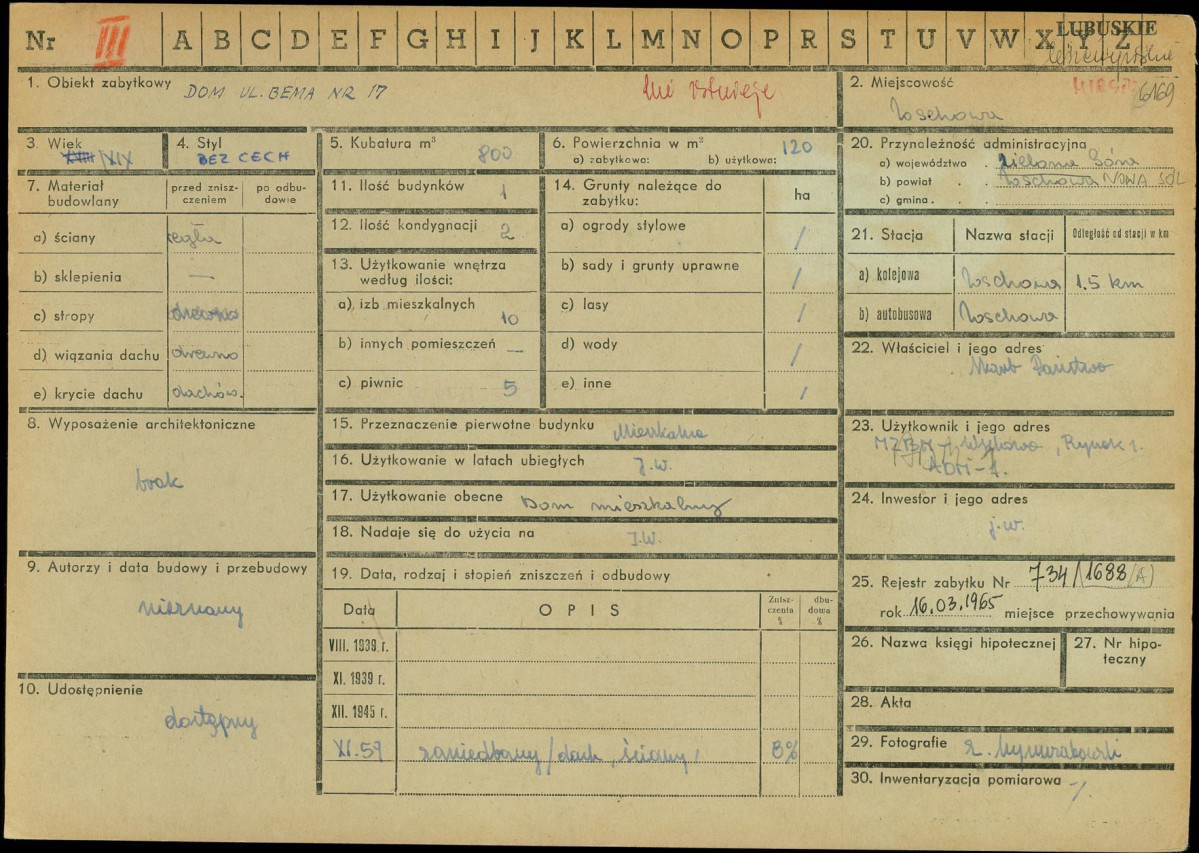 Nr III A B C D E F G H I J K L M N O P R S T U V W X Y Z
LUBUSKIE
1. Obiekt zabytkowy DOM UL. BEMA NR 17
nie istnieje
2. Miejscowość
6169
Wschowa
3. Wiek
XVIII/XIX
4. Styl
BEZ CECH
5. Kubatura m³ 800
6. Powierzchnia w m² 120
a) zabytkowa: b) użytkowa:
20. Przynależność administracyjna
a) województwo . Zielona Góra
b) powiat . . Wschowa NOWA SÓL
c) gmina . . .
7. Materiał budowlany
przed zniszczeniem
po odbudowie
a) ściany cegła
b) sklepienia —
c) stropy drewno
d) wiązania dachu drewno
e) krycie dachu dachów.
11. Ilość budynków 1
12. Ilość kondygnacji 2
13. Użytkowanie wnętrza
według ilości:
a) izb mieszkalnych 10
b) innych pomieszczeń —
c) piwnic 5
14. Grunty należące do
zabytku:
ha
a) ogrody stylowe /
b) sady i grunty uprawne /
c) lasy /
d) wody /
e) inne /
21. Stacja Nazwa stacji Odległość od stacji w km
a) kolejowa Wschowa 1.5 km
b) autobusowa Wschowa
22. Właściciel i jego adres
Skarb Państwa
8. Wyposażenie architektoniczne
brak
15. Przeznaczenie pierwotne budynku Mieszkalne
16. Użytkowanie w latach ubiegłych J.W.
17. Użytkowanie obecne Dom mieszkalny
18. Nadaje się do użycia na J.W.
23. Użytkownik i jego adres
MZBM - Wschowa, Rynek 1.
ADM-1.
24. Inwestor i jego adres
j.w.
9. Autorzy i data budowy i przebudowy
nieznany
19. Data, rodzaj i stopień zniszczeń i odbudowy
Data OPIS Zniszczenia % dbudowa %
VIII. 1939 r.
XI. 1939 r.
XII. 1945 r.
XI.59 zaniedbany /dach, ściany/ 8%
10. Udostępnienie
dostępny
25. Rejestr zabytku Nr 734/1688/A)
rok 16.03.1965 miejsce przechowywania
26. Nazwa księgi hipotecznej
27. Nr hipoteczny
28. Akta
29. Fotografie
30. Inwentaryzacja pomiarowa -/.